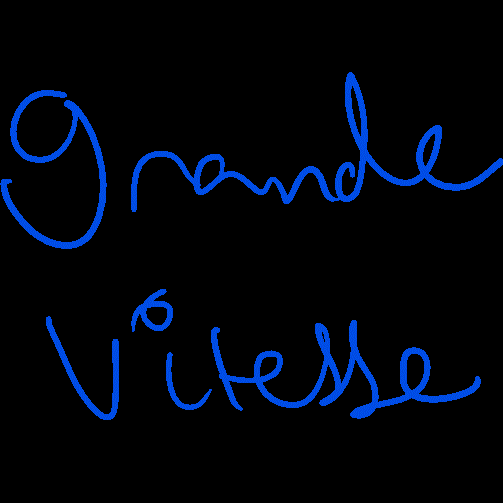 grande
Vitesse